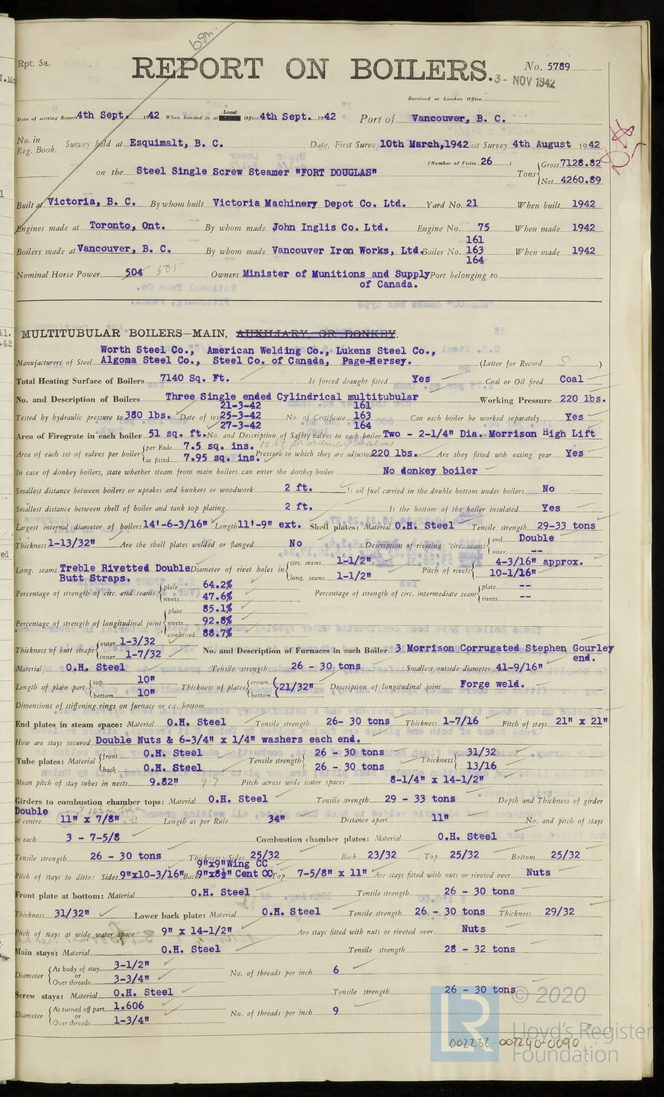 Rpt. 5a.
REPORT ON BOILERS.
No. 5789
3 - NOV 1942
Received at London Office
Date of writing Report 4th Sept. 1942 When handed in at Local Office 4th Sept. 1942 Port of Vancouver, B. C.
No. in Reg. Book. Survey held at Esquimalt, B. C. Date, First Survey 10th March, 1942 Last Survey 4th August 1942
(Number of Visits 26 )
on the Steel Single Screw Steamer "FORT DOUGLAS" Tons Gross 7128.82
Net 4260.89
Built at Victoria, B. C. By whom built Victoria Machinery Depot Co. Ltd. Yard No. 21 When built 1942
Engines made at Toronto, Ont. By whom made John Inglis Co. Ltd. Engine No. 75 When made 1942
161
Boilers made at Vancouver, B. C. By whom made Vancouver Iron Works, Ltd. Boiler No. 163 When made 1942
164
Nominal Horse Power 504 505 Owners Minister of Munitions and Supply Port belonging to
of Canada.
MULTITUBULAR BOILERS—MAIN, AUXILIARY, OR DONKEY.
Worth Steel Co., American Welding Co., Lukens Steel Co.,
Manufacturers of Steel Algoma Steel Co., Steel Co. of Canada, Page-Hersey. (Letter for Record S )
Total Heating Surface of Boilers 7140 Sq. Ft. Is forced draught fitted Yes Coal or Oil fired Coal
No. and Description of Boilers Three Single ended Cylindrical multitubular Working Pressure 220 lbs.
21-3-42 161
Tested by hydraulic pressure to 380 lbs. Date of test 25-3-42 No. of Certificate 163 Can each boiler be worked separately Yes
27-3-42 164
Area of Firegrate in each boiler 51 sq. ft. No. and Description of Safety valves to each boiler Two - 2-1/4" Dia. Morrison High Lift
Area of each set of valves per boiler per Rule 7.5 sq. ins.
as fitted 7.95 sq. ins. Pressure to which they are adjusted 220 lbs. Are they fitted with easing gear Yes
In case of donkey boilers, state whether steam from main boilers can enter the donkey boiler No donkey boiler
Smallest distance between boilers or uptakes and bunkers or woodwork 2 ft. Is oil fuel carried in the double bottom under boilers No
Smallest distance between shell of boiler and tank top plating 2 ft. Is the bottom of the boiler insulated Yes
Largest internal diameter of boilers 14'-6-3/16" Length 11'-9" ext. Shell plates: Material O.H. Steel Tensile strength 29-33 tons
Thickness 1-13/32" Are the shell plates welded or flanged No Description of riveting: circ. seams end Double
inter. --
Long. seams Treble Rivetted Double Butt Straps. Diameter of rivet holes in circ. seams 1-1/2" Pitch of rivets 4-3/16" approx.
long. seams 1-1/2" 10-1/16"
Percentage of strength of circ. end seams plate 64.2% Percentage of strength of circ. intermediate seam plate --
rivets 47.6% rivets --
Percentage of strength of longitudinal joint plate 85.1%
rivets 92.8%
combined 88.7%
Thickness of butt straps outer 1-3/32 No. and Description of Furnaces in each Boiler 3 Morrison Corrugated Stephen Gourley end.
inner 1-7/32
Material O.H. Steel Tensile strength 26 - 30 tons Smallest outside diameter 41-9/16"
Length of plain part top 10" Thickness of plates crown 21/32" Description of longitudinal joint Forge weld.
bottom 10" bottom
Dimensions of stiffening rings on furnace or c.c. bottom
End plates in steam space: Material O.H. Steel Tensile strength 26- 30 tons Thickness 1-7/16 Pitch of stays 21" x 21"
How are stays secured Double Nuts & 6-3/4" x 1/4" washers each end.
Tube plates: Material front O.H. Steel Tensile strength 26 - 30 tons Thickness 31/32
back O.H. Steel 26 - 30 tons 13/16
Mean pitch of stay tubes in nests 9.82" 9.7 Pitch across wide water spaces 8-1/4" x 14-1/2"
Girders to combustion chamber tops: Material O.H. Steel Tensile strength 29 - 33 tons Depth and Thickness of girder
Double
at centre 11" x 7/8" Length as per Rule 34" Distance apart 11" No. and pitch of stays
in each 3 - 7-5/8 Combustion chamber plates: Material O.H. Steel
Tensile strength 26 - 30 tons Thickness: Sides 25/32 Back 23/32 Top 25/32 Bottom 25/32
9"x9" Wing CC
Pitch of stays to ditto: Sides 9"x10-3/16" Back 9"x8½" Cent CC Top 7-5/8" x 11" Are stays fitted with nuts or riveted over Nuts
Front plate at bottom: Material O.H. Steel Tensile strength 26 - 30 tons
Thickness 31/32" Lower back plate: Material O.H. Steel Tensile strength 26 - 30 tons Thickness 29/32
Pitch of stays at wide water space 9" x 14-1/2" Are stays fitted with nuts or riveted over Nuts
Main stays: Material O.H. Steel Tensile strength 28 - 32 tons
Diameter At body of stay, 3-1/2" No. of threads per inch 6
or Over threads 3-3/4"
Screw stays: Material O.H. Steel Tensile strength 26 - 30 tons
Diameter At turned off part, 1.606 No. of threads per inch 9
or Over threads 1-3/4"
© 2020
LR
Lloyd's Register
Foundation
002232-002240-0090